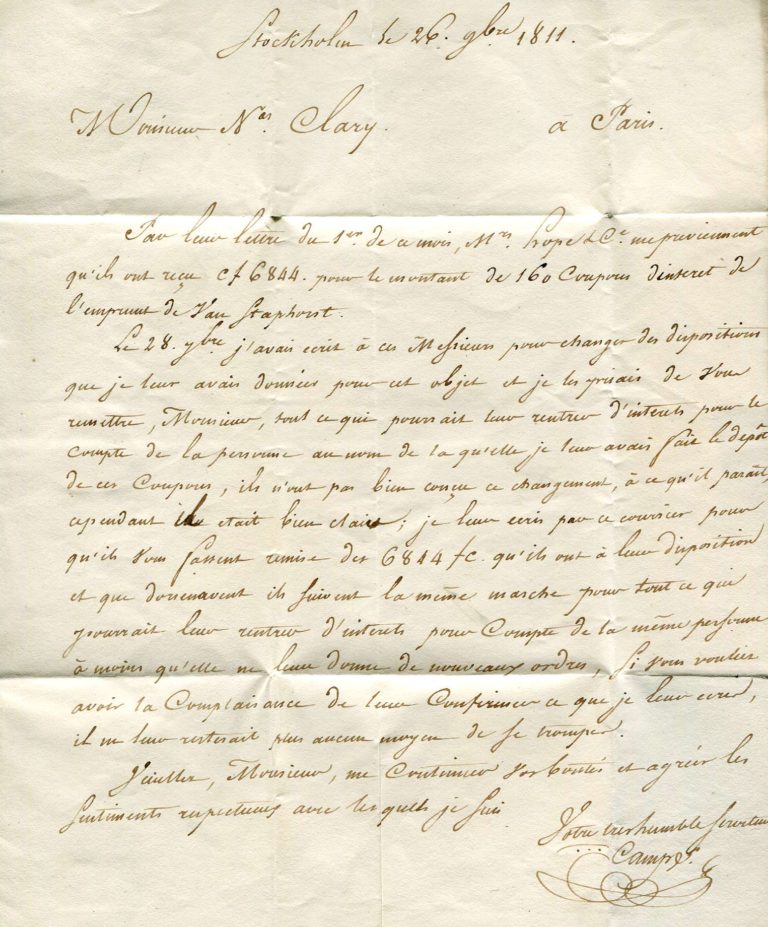 Stockholm le 26. 9bre 1811.
Monsieur Nas. Clary. à Paris.
Par leur lettre du 1er. de ce mois, Mrs. hope & Ce. me previennent
qu'ils ont reçu cf 6844. pour le montant de 160 Coupons d'interet de
l'emprunt de Van Staphorst.
Le 28. 7bre j'avais ecrit à ces Messieurs pour changer des dispositions
que je leur avais données pour cet objet et je les priais de Vous
remettre, Monsieur, tout ce qui pourrait leur rentrer d'interets pour le
compte de la personne au nom de la qu'elle je leur avais fait le depôt
de ces Coupons, ils n'ont pas bien conçu ce changement, à ce qu'il parait,
cependant il etait bien clair; je leur ecris par ce courrier pour
qu'ils Vous fassent remise des 6844 fc. qu'ils ont à leur disposition
et que dorienavent ils suivent la même marche pour tout ce qui
pourrait leur rentrer d'interets pour Compte de la même personne
à moins qu'elle ne leur donne de nouveaux ordres, Si vous vouliez
avoir la Complaisance de leur Confirmer ce que je leur ecris,
il ne leur resterait plus aucun moyen de se tromper.
Veuillez, Monsieur, me Continuer vos bontés et agréer les
Sentiments respectueux avec lesquels je suis
Votre tres humble serviteur
Camps.